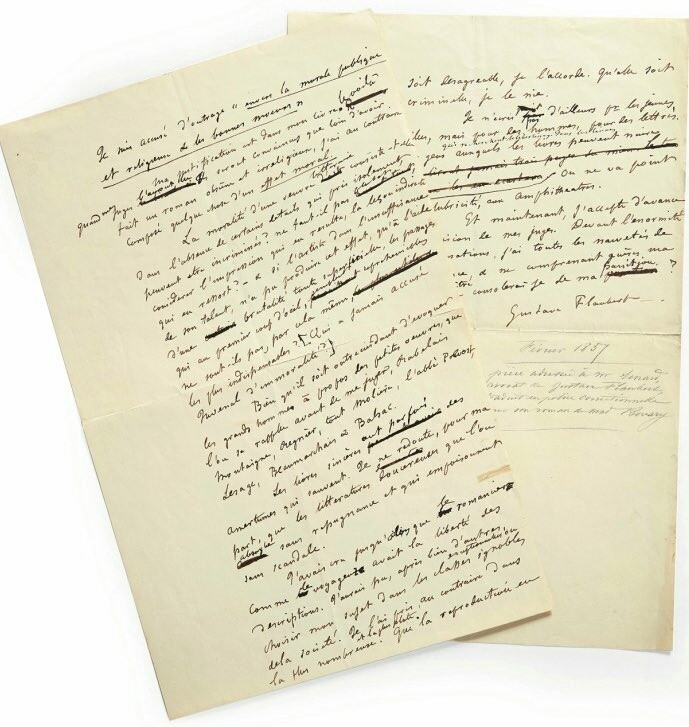 Je suis accusé d'outrage « envers la morale publique
et religieuse & les bonnes mœurs »
Ma justification est dans mon livre. le voilà
quand mes juges l'auront lu ils seront convaincus que loin d'avoir
fait un roman obscène et irréligieux, j'ai au contraire
composé quelque chose d'un effet moral.
La moralité d'une œuvre littéraire consiste-t-elle
dans l'absence de certains détails qui, pris isolément,
peuvent être incriminés? ne faut-il pas
considérer l'impression qui en résulte, la leçon indirecte
qui en ressort? - & si l'artiste dans l'insuffisance
de son talent, n'a pu produire cet effet, qu'à l'aide
d'une brutalité toute superficielle, les passages
qui au premier coup d'œil, reprochables
ne sont-ils pas, par cela même,
les plus indispensables? (Qui a jamais accusé
Juvénal d'immoralité?)
Bien qu'il soit outrecuidant d'évoquer
les grands hommes à propos des petites œuvres, que
l'on se rappelle avant de me juger, Rabelais
Montaigne, Régnier, tout Molière, l'abbé Prévost
Lesage, Beaumarchais & Balzac.
Les livres sincères ont parfois des
amertumes qui sauvent. Je ne redoute, pour ma
part, que les littératures doucereuses que l'on
absorbe sans répugnance et qui empoisonnent
sans scandale.
J'avais cru jusqu'alors que le romancier
comme le voyageur avait la liberté des
descriptions. J'aurais pu, après bien d'autres,
choisir mon sujet dans les classes exceptionnelles ou ignobles
de la société. Je l'ai pris au contraire dans
la plus nombreuse et la plus plate. Que la reproduction en
soit désagréable, je l'accorde. Qu'elle soit
criminelle, je le nie.
Je n'écris d'ailleurs pr les jeunes
filles, mais pour des hommes, pour des lettrés.
gens auxquels les livres peuvent nuire
On ne va point
lubricité, aux Amphithéâtres.
Et maintenant, j'accepte d'avance
cision de mes juges. Devant l'énormité
rations, j'ai toutes les naïvetés de
ce, & ne comprenant guères ma
consolerai-je de ma punition ?
Gustave Flaubert
Février 1857
pièce adressée à Mr Senard,
avocat de Gustave Flaubert,
traduit en police correctionnelle
son roman de Mad Bovary